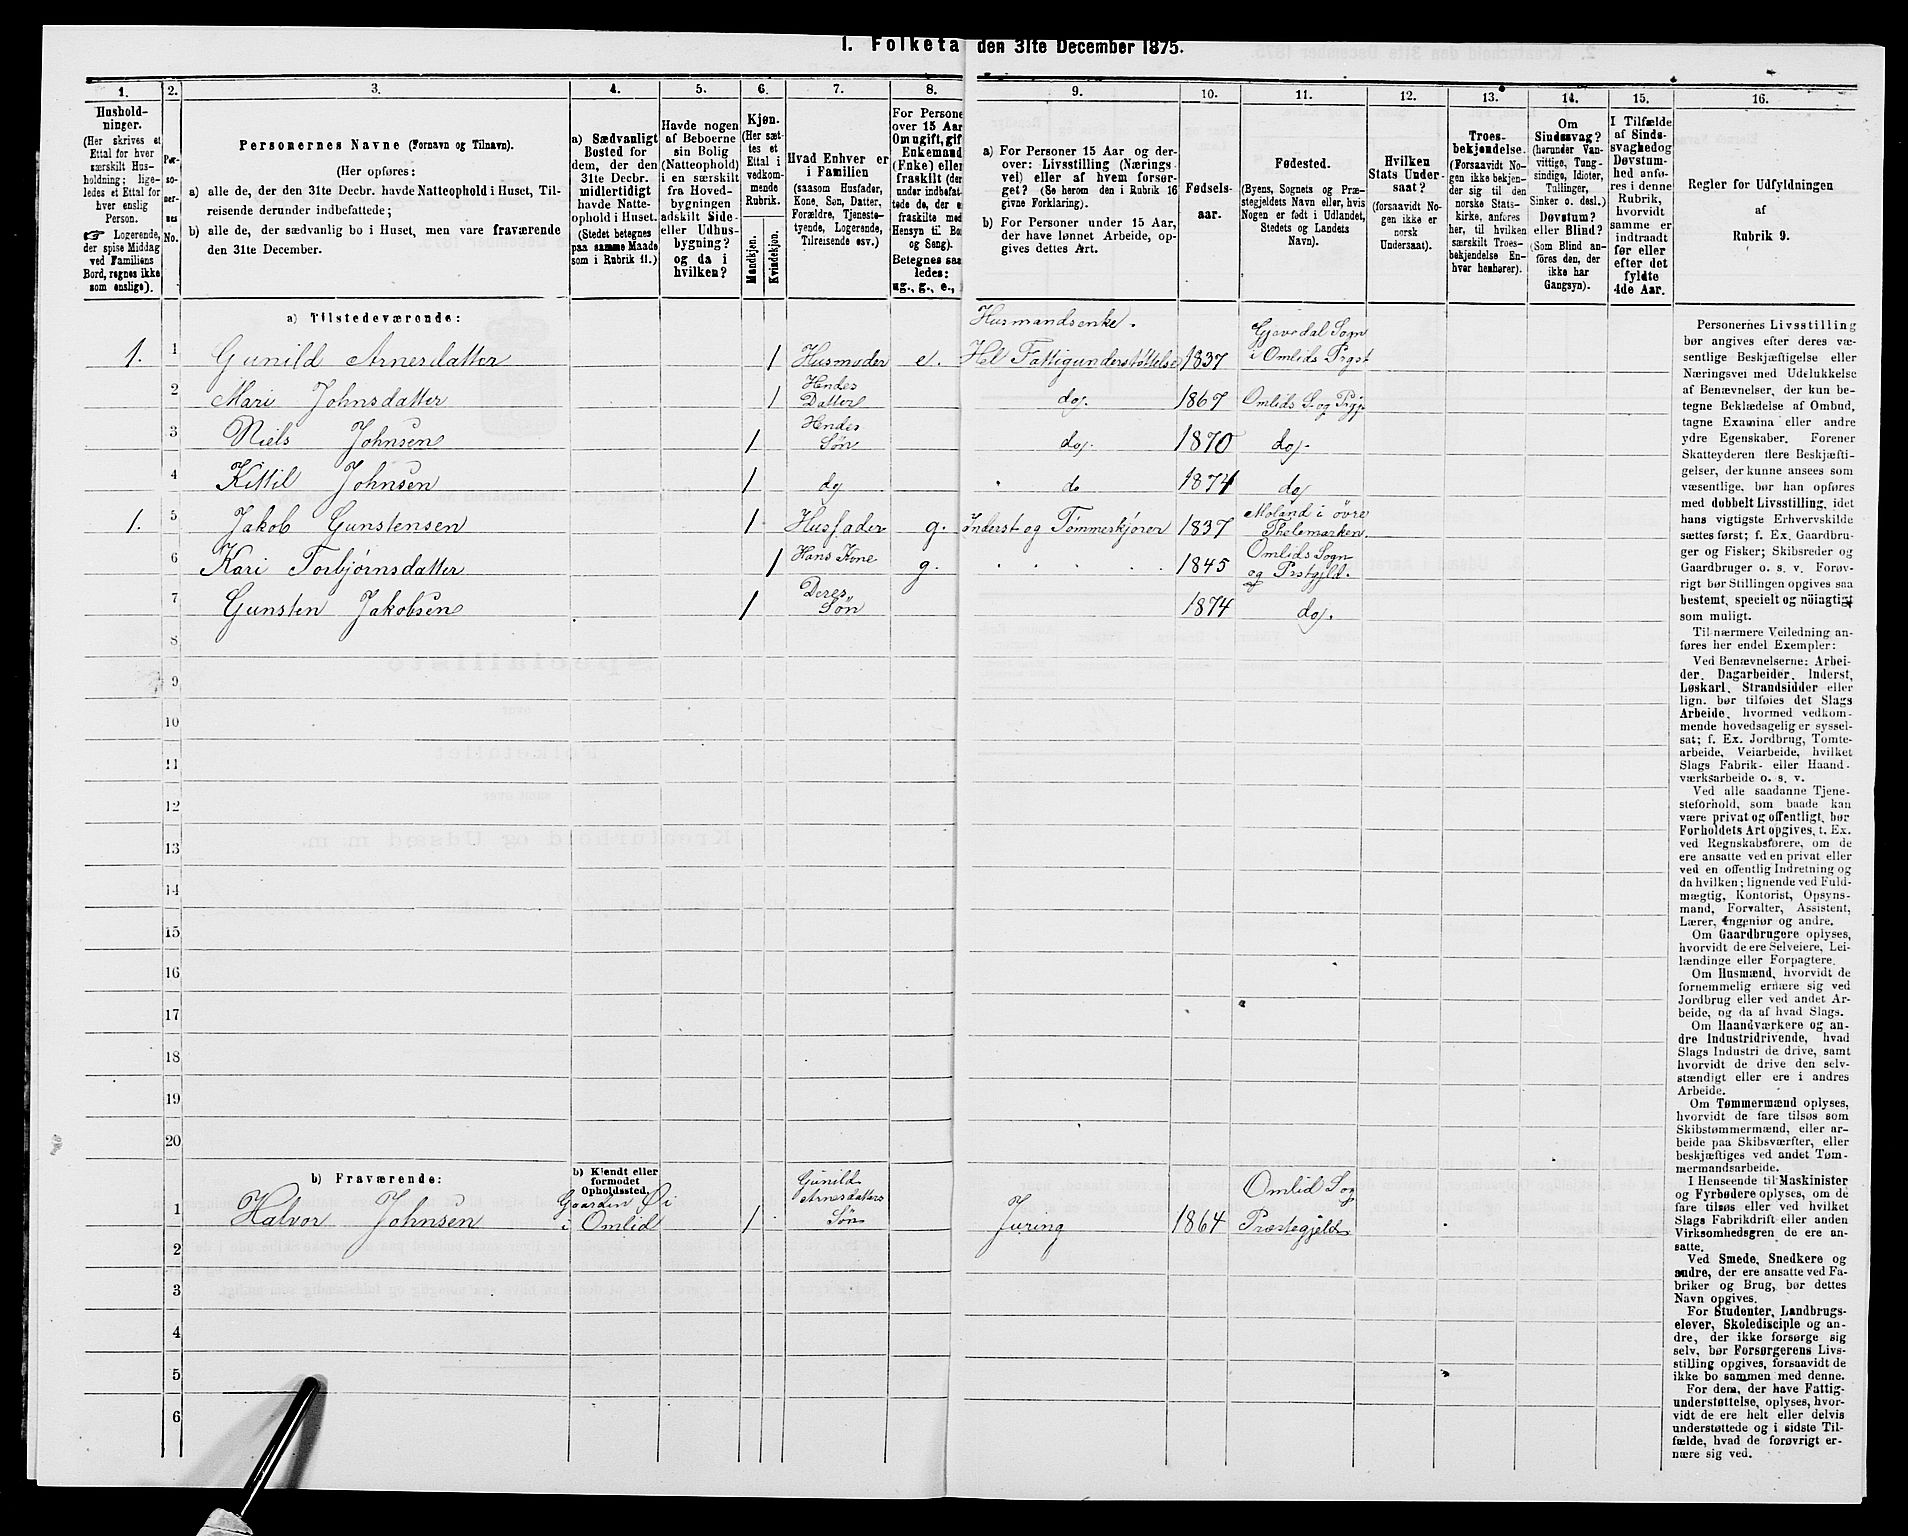 1. Folketa den 31te December 1875.
1. 2. 3. 4. 5. 6. 7. 8. 9. 10. 11. 12. 13. 14. 15. 16.
Hushold-
ninger.
(Her skrives et
Ettal for hver
særskilt Hus-
holdning; lige-
ledes et Ettal for
hver enslig
Person.
☞ Logerende,
der spise Middag
ved Familiens
Bord, regnes ikke
som enslige).
Per-
so-
ner-
nes
No.
Personernes Navne (Fornavn og Tilnavn).
(Her opføres:
a) alle de, der den 31te Decbr. havde Natteophold i Huset, Til-
reisende derunder indbefattede;
b) alle de, der sædvanlig bo i Huset, men vare fraværende
den 31te December.
a) Sædvanligt
Bosted for
dem, der den
31te Decbr.
midlertidigt
havde Natte-
ophold i Huset.
(Stedet betegnes
paa samme Maade
som i Rubrik 11.)
Havde nogen
af Beboerne
sin Bolig
(Natteophold)
i en særskilt
fra Hoved-
bygningen
adskilt Side-
eller Udhus-
bygning?
og da i
hvilken?
Kjøn.
(Her sæt-
tes et
Ettal i
vedkom-
mende
Rubrik.)
Mandkjøn.
Kvindekjøn.
Hvad Enhver er
i Familien
(saasom Husfader,
Kone, Søn, Datter,
Forældre, Tjeneste-
tyende, Logerende,
Tilreisende osv.)
For Persone
over 15 Aar
Om ugift, gif
Enkemand
(Enke) eller
fraskilt (der
under indbefat
tede de, der e
fraskilte med
Hensyn til Bo
og Seng).
Betegnes saa
ledes:
ug., g., e.,
a) For Personer 15 Aar og der-
over: Livsstilling (Nærings-
vei) eller af hvem forsør-
get? (Se herom den i Rubrik 16
givne Forklaring).
b) For Personer under 15 Aar,
der have lønnet Arbeide, op-
gives dettes Art.
Fødsels-
aar.
Fødested.
(Byens, Sognets og Præ-
stegjeldets Navn eller, hvis
Nogen er født i Udlandet,
Stedets og Landets
Navn).
Hvilken
Stats Under-
saat?
(forsaavidt No-
gen ikke er
norsk
Undersaat).
Troes-
bekjendelse.
(Forsaavidt No-
gen ikke bekjen-
der sig til den
norske Stats-
kirke, anføres
her, til hvilken
særskilt Troes-
bekjendelse En-
hver henhører).
Om
Sindssvag?
(herunder Van-
vittige, Tung-
sindige, Idioter,
Tullinger,
Sinker o. desl.)
Døvstum?
eller Blind?
(Som Blind an-
føres den, der
ikke har
Gangsyn).
I Tilfælde
af Sinds-
svaghed og
Døvstum-
hed anfø-
res i denne
Rubrik,
hvorvidt
samme er
indtraadt
før eller
efter det
fyldte
4de Aar.
Regler for Udfyldningen
af
Rubrik 9.
a) Tilstedeværende:
Husmandsenke. Gjøvdal Sogn
1. 1 Gunild Arnesdatter 1 Husmoder e. Hel Fattigunderstøttelse 1837 i Omlids Prgst
Hendes
2 Mari Johnsdatter 1 Datter do. 1867 Omlids S. og Prgj.
Hendes
3 Niels Johnsen 1 Søn do. 1870 do.
4 Kittil Johnsen 1 do do 1874 do
Moland i övre
1. 5 Jakob Gunstensen 1 Husfader g. Inderst og Tømmerkjører 1837 Thelemarken
Omlids Sogn
6 Kari Torbjørnsdatter 1 Hans Kone g. 1845 og Prstgjld.
Deres
7 Gunsten Jakobsen 1 Søn 1874 do.
8
9
10
11
12
13
14
15
16
17
18
19
20
b) Fraværende:
b) Kjendt eller
formodet
Opholdssted.
Gunild
Gaarden Øi Arnesdatters Omlid Sog
1 Halvor Johnsen i Omlid 1 Søn 1864 Præstegjeld
2
3
4
5
6
Personernes Livsstilling
bør angives efter deres væ-
sentlige Beskjæftigelse eller
Næringsvei med Udelukkelse
af Benævnelser, der kun be-
tegne Beklædelse af Ombud,
tagne Examina eller andre
ydre Egenskaber. Forener
Skatteyderen flere Beskjæfti-
gelser, der kunne ansees som
væsentlige, bør han opføres
med dobbelt Livsstilling, idet
hans vigtigste Erhvervskilde
sættes først; f. Ex. Gaardbru-
ger og Fisker; Skibsreder og
Gaardbruger o. s. v. Forøv-
rigt bør Stillingen opgives saa
bestemt, specielt og nöiagtigt
som muligt.
Til nærmere Veiledning an-
føres her endel Exempler:
Ved Benævnelserne: Arbei-
der, Dagarbeider, Inderst,
Løskarl, Strandsidder eller
lign. bør tilføies det Slags
Arbeide, hvormed vedkom-
mende hovedsagelig er syssel-
sat; f. Ex. Jordbrug, Tomte-
arbeide, Veiarbeide, hvilket
Slags Fabrik- eller Haand-
værksarbeide o. s. v.
Ved alle saadanne Tjene-
steforhold, som baade kan
være privat og offentligt, bør
Forholdets Art opgives, t. Ex.
ved Regnskabsførere, om de
ere ansatte ved en privat eller
ved en offentlig Indretning og
da hvilken; lignende ved Fuld-
mægtig, Kontorist, Opsyns-
mand, Forvalter, Assistent,
Lærer, Ingeniør og andre.
Om Gaardbrugere oplyses,
hvorvidt de ere Selveiere, Lei-
lændinge eller Forpagtere.
Om Husmænd, hvorvidt de
fornemmelig ernære sig ved
Jordbrug eller ved andet Ar-
beide, og da af hvad Slags.
Om Haandværkere og an-
dre Industridrivende, hvad
Slags Industri de drive, samt
hvorvidt de drive den selv-
stændigt eller ere i andres
Arbeide.
Om Tømmermænd oplyses,
hvorvidt de fare tilsøs som
Skibstømmermænd, eller ar-
beide paa Skibsværfter, eller
beskjæftiges ved andet Tøm-
mermandsarbeide.
I Henseende til Maskinister
og Fyrbødere oplyses, om de
fare tilsøs eller ved hvilket
Slags Fabrikdrift eller anden
Virksomhedsgren de ere an-
satte.
Ved Smede, Snedkere og
andre, der ere ansatte ved Fa-
briker og Brug, bør dettes
Navn opgives.
For Studenter, Landbrugs-
elever, Skoledisciple og an-
dre, der ikke forsørge sig
selv, bør Forsørgerens Livs-
stilling opgives, forsaavidt de
ikke bo sammen med denne.
For dem, der have Fattig-
understøttelse, oplyses, hvor-
vidt de ere helt eller delvis
understøttede og i sidste Til-
fælde, hvad de forøvrigt er-
nære sig ved.